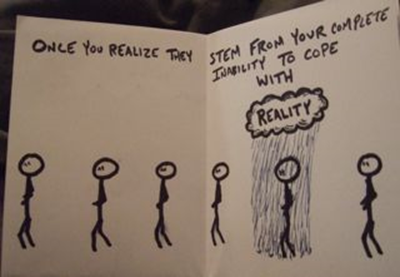 ONCE YOU REALIZE THEY
STEM FROM YOUR COMPLETE
INABILITY TO COPE
WITH
REALITY